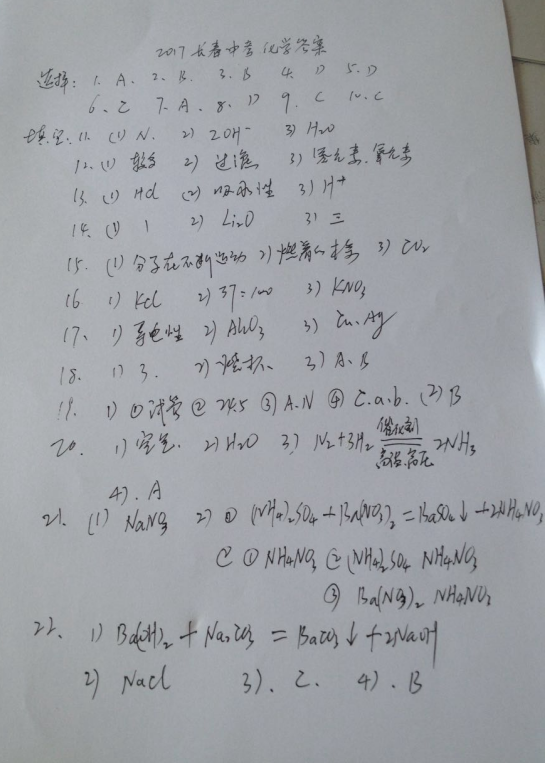 2017 长春中考 化学答案
选择: 1. A. 2. B. 3. B 4. D 5. D
6. C 7. A. 8. D 9. C 10. C
填空. 11. (1) N. 2) 2OH⁻ 3) H₂O
12. (1) 2) 过滤 3) 元素. 氧元素
13. (1) HCl (2) 吸水性 3) H⁺
14. (1) 1 2) Li₂O 3) 三
15. (1) 分子在不断运动 2) 燃着的木条 3) CO₂
16. 1) KCl 2) 37:100 3) KNO₃
17. 1) 导电性 2) Al₂O₃ 3) Cu. Ag
18. 1) 3. 2) 烧杯. 3) A. B
19. 1) ① 试管 ② 24.5 ③ A. N ④ C. a. b. (2) B
20. 1) 空气. 2) H₂O 3) N₂+3H₂ 催化剂 高温.高压 2NH₃
4). A
21. (1) NaNO₃ 2) ① (NH₄)₂SO₄ + Ba(NO₃)₂ = BaSO₄↓ + 2NH₄NO₃
① NH₄NO₃ ② (NH₄)₂SO₄ NH₄NO₃
③ Ba(NO₃)₂ NH₄NO₃
22. 1) Ba(OH)₂ + Na₂CO₃ = BaCO₃↓ + 2NaOH
2) NaCl 3). C. 4). B